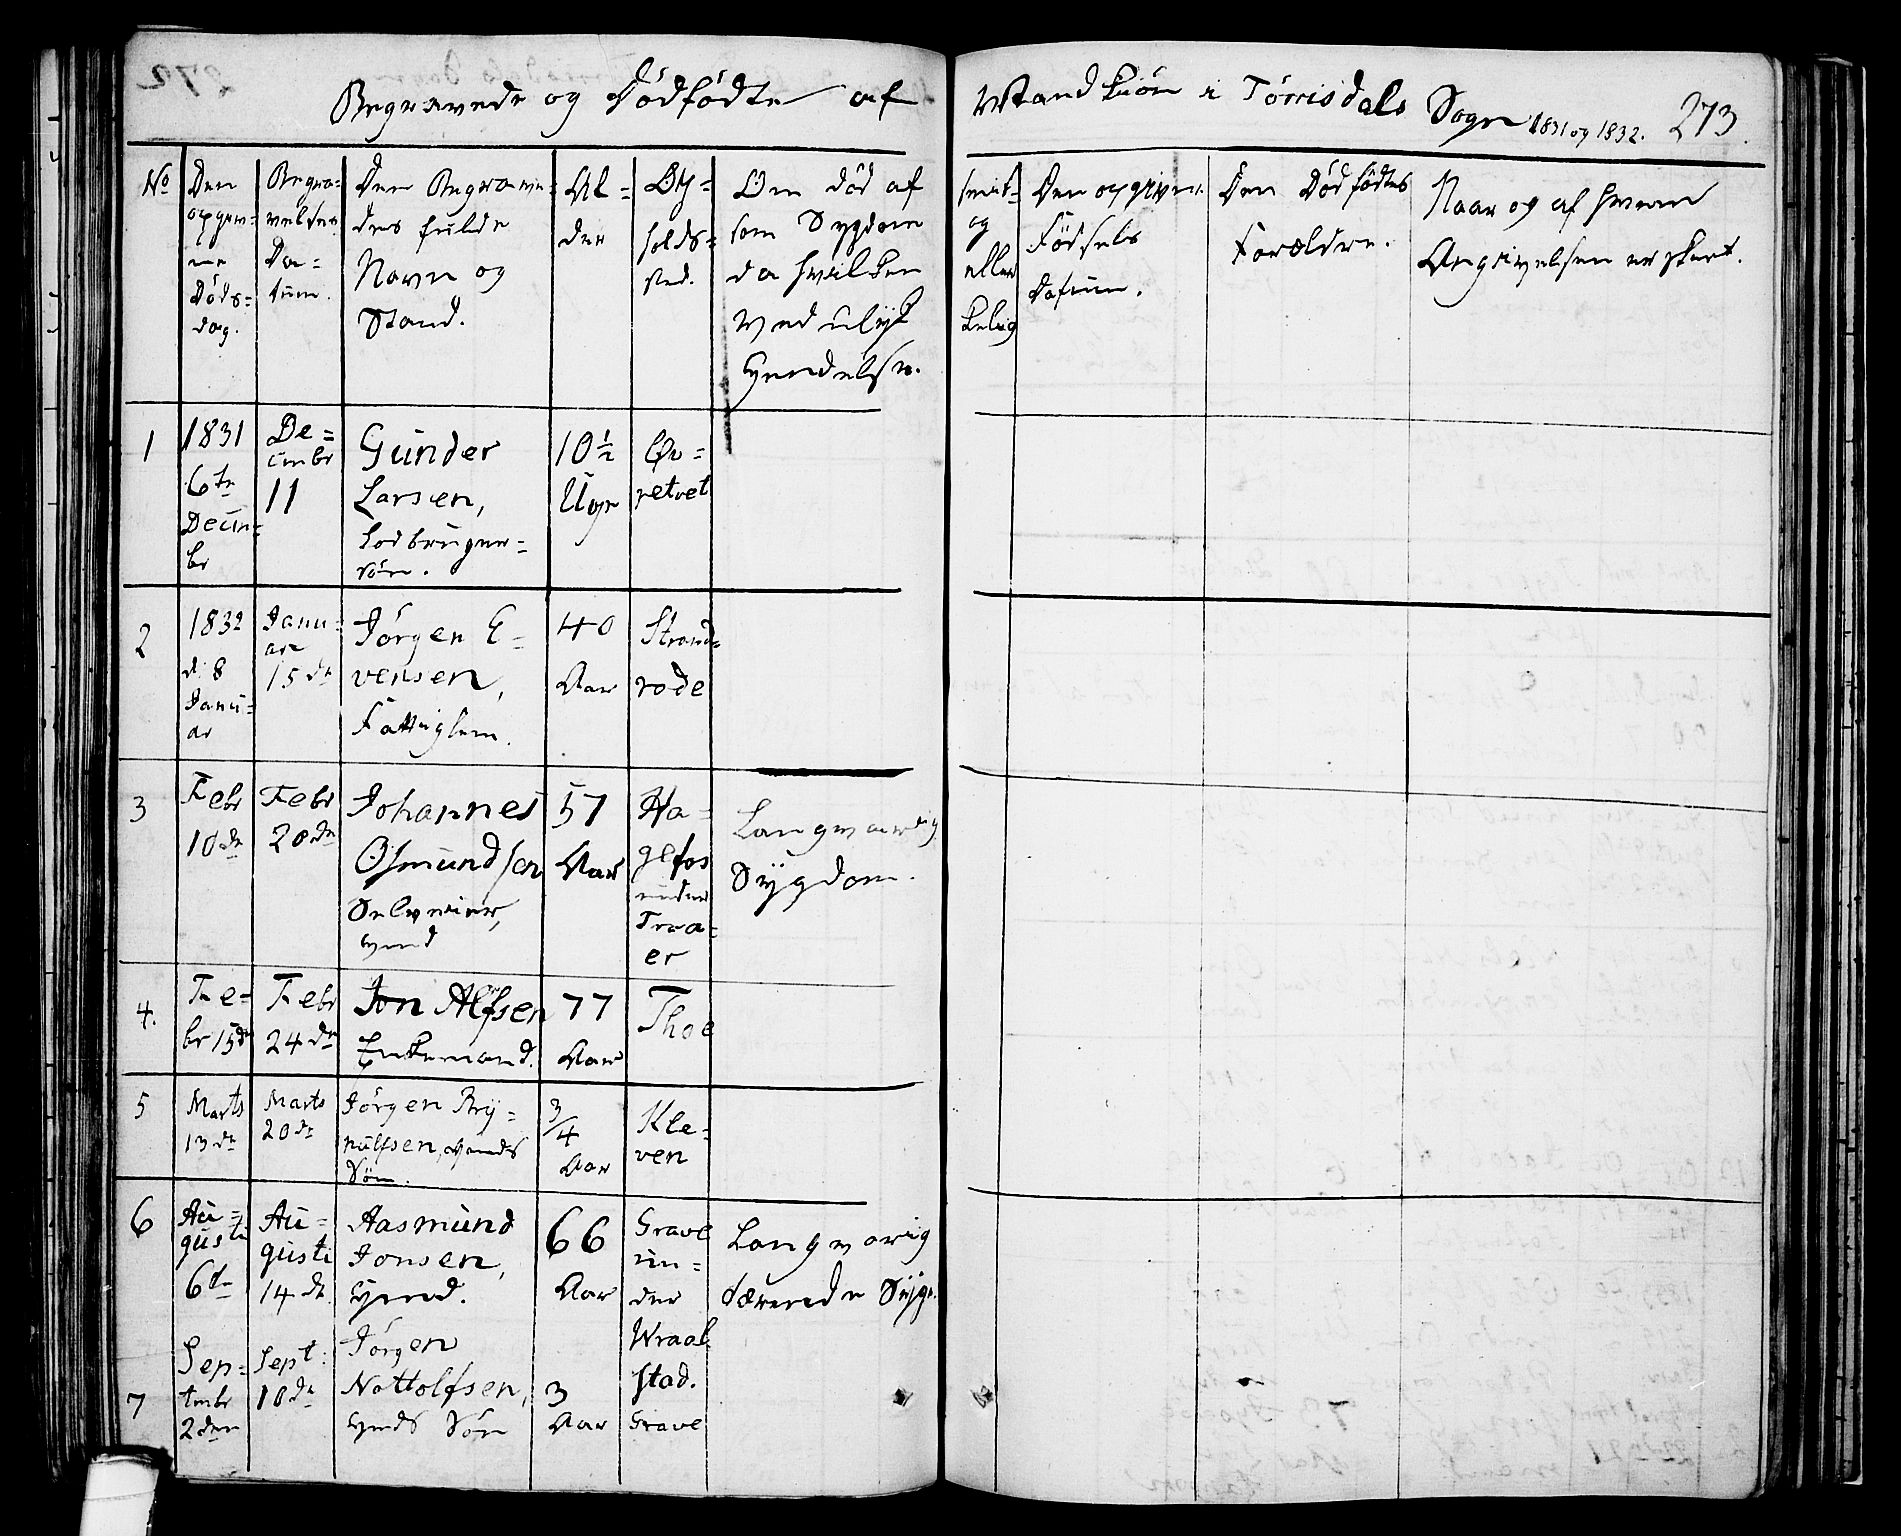 Begravede og Dødfødte af Mandkiøn i Tørrisdals Sogn 1831 og 1832. 273.
No
Den
opgiv=
ne
Døds=
dag.
Begra=
velses
Da=
tum.
Den Begrave=
des fulde
Navn og
Stand.
Al=
der
Op=
holds=
sted.
Om død af
som Sygdom
da hvilken
ved ulyk
Hendelse.
smit=
og
eller
kelig
Den opgivne
Fødsels
Datum.
Den Dødfødtes
Forældre.
Naar og af hvem
Angivelsen er skeet.
1
1831
6te
Decem=
br
De=
cembr
11
Gunder
Larsen,
Jordbruger=
søn.
10 1/2
Uge
Øv=
retvet
2
1832
d: 8
Janu=
ar
Janu=
ar
15de
Jørgen E=
vensen,
Fattiglem.
40
Aar
Strand=
rode
3
Febr
10de
Febr
20de
Johannes
Osmundsen
Selveier,
gmd
57
Aar
Ha=
gefos
under
Traa=
er
Langvarig
Sygdom.
4.
Fe=
br 15de
Febr
24de
Jon Alfsen
Enkemand.
77
Aar
Thoe
5
Marts
13de
Marts
20de
Jørgen Bry=
nulfsen, Gmds
Søn.
3/4
Aar
Kle=
ven
6
Au=
gusti
6te
Au=
gusti
14de
Aasmund
Jonsen,
Gmd.
66
Aar
Grave
un=
der
Wraal
stad.
Langvarig
tærende Syge.
7
Sep=
tembr
2den
Sept:
10de
Jørgen
Nottolfsen,
Gmds Søn
3
Aar
Grave